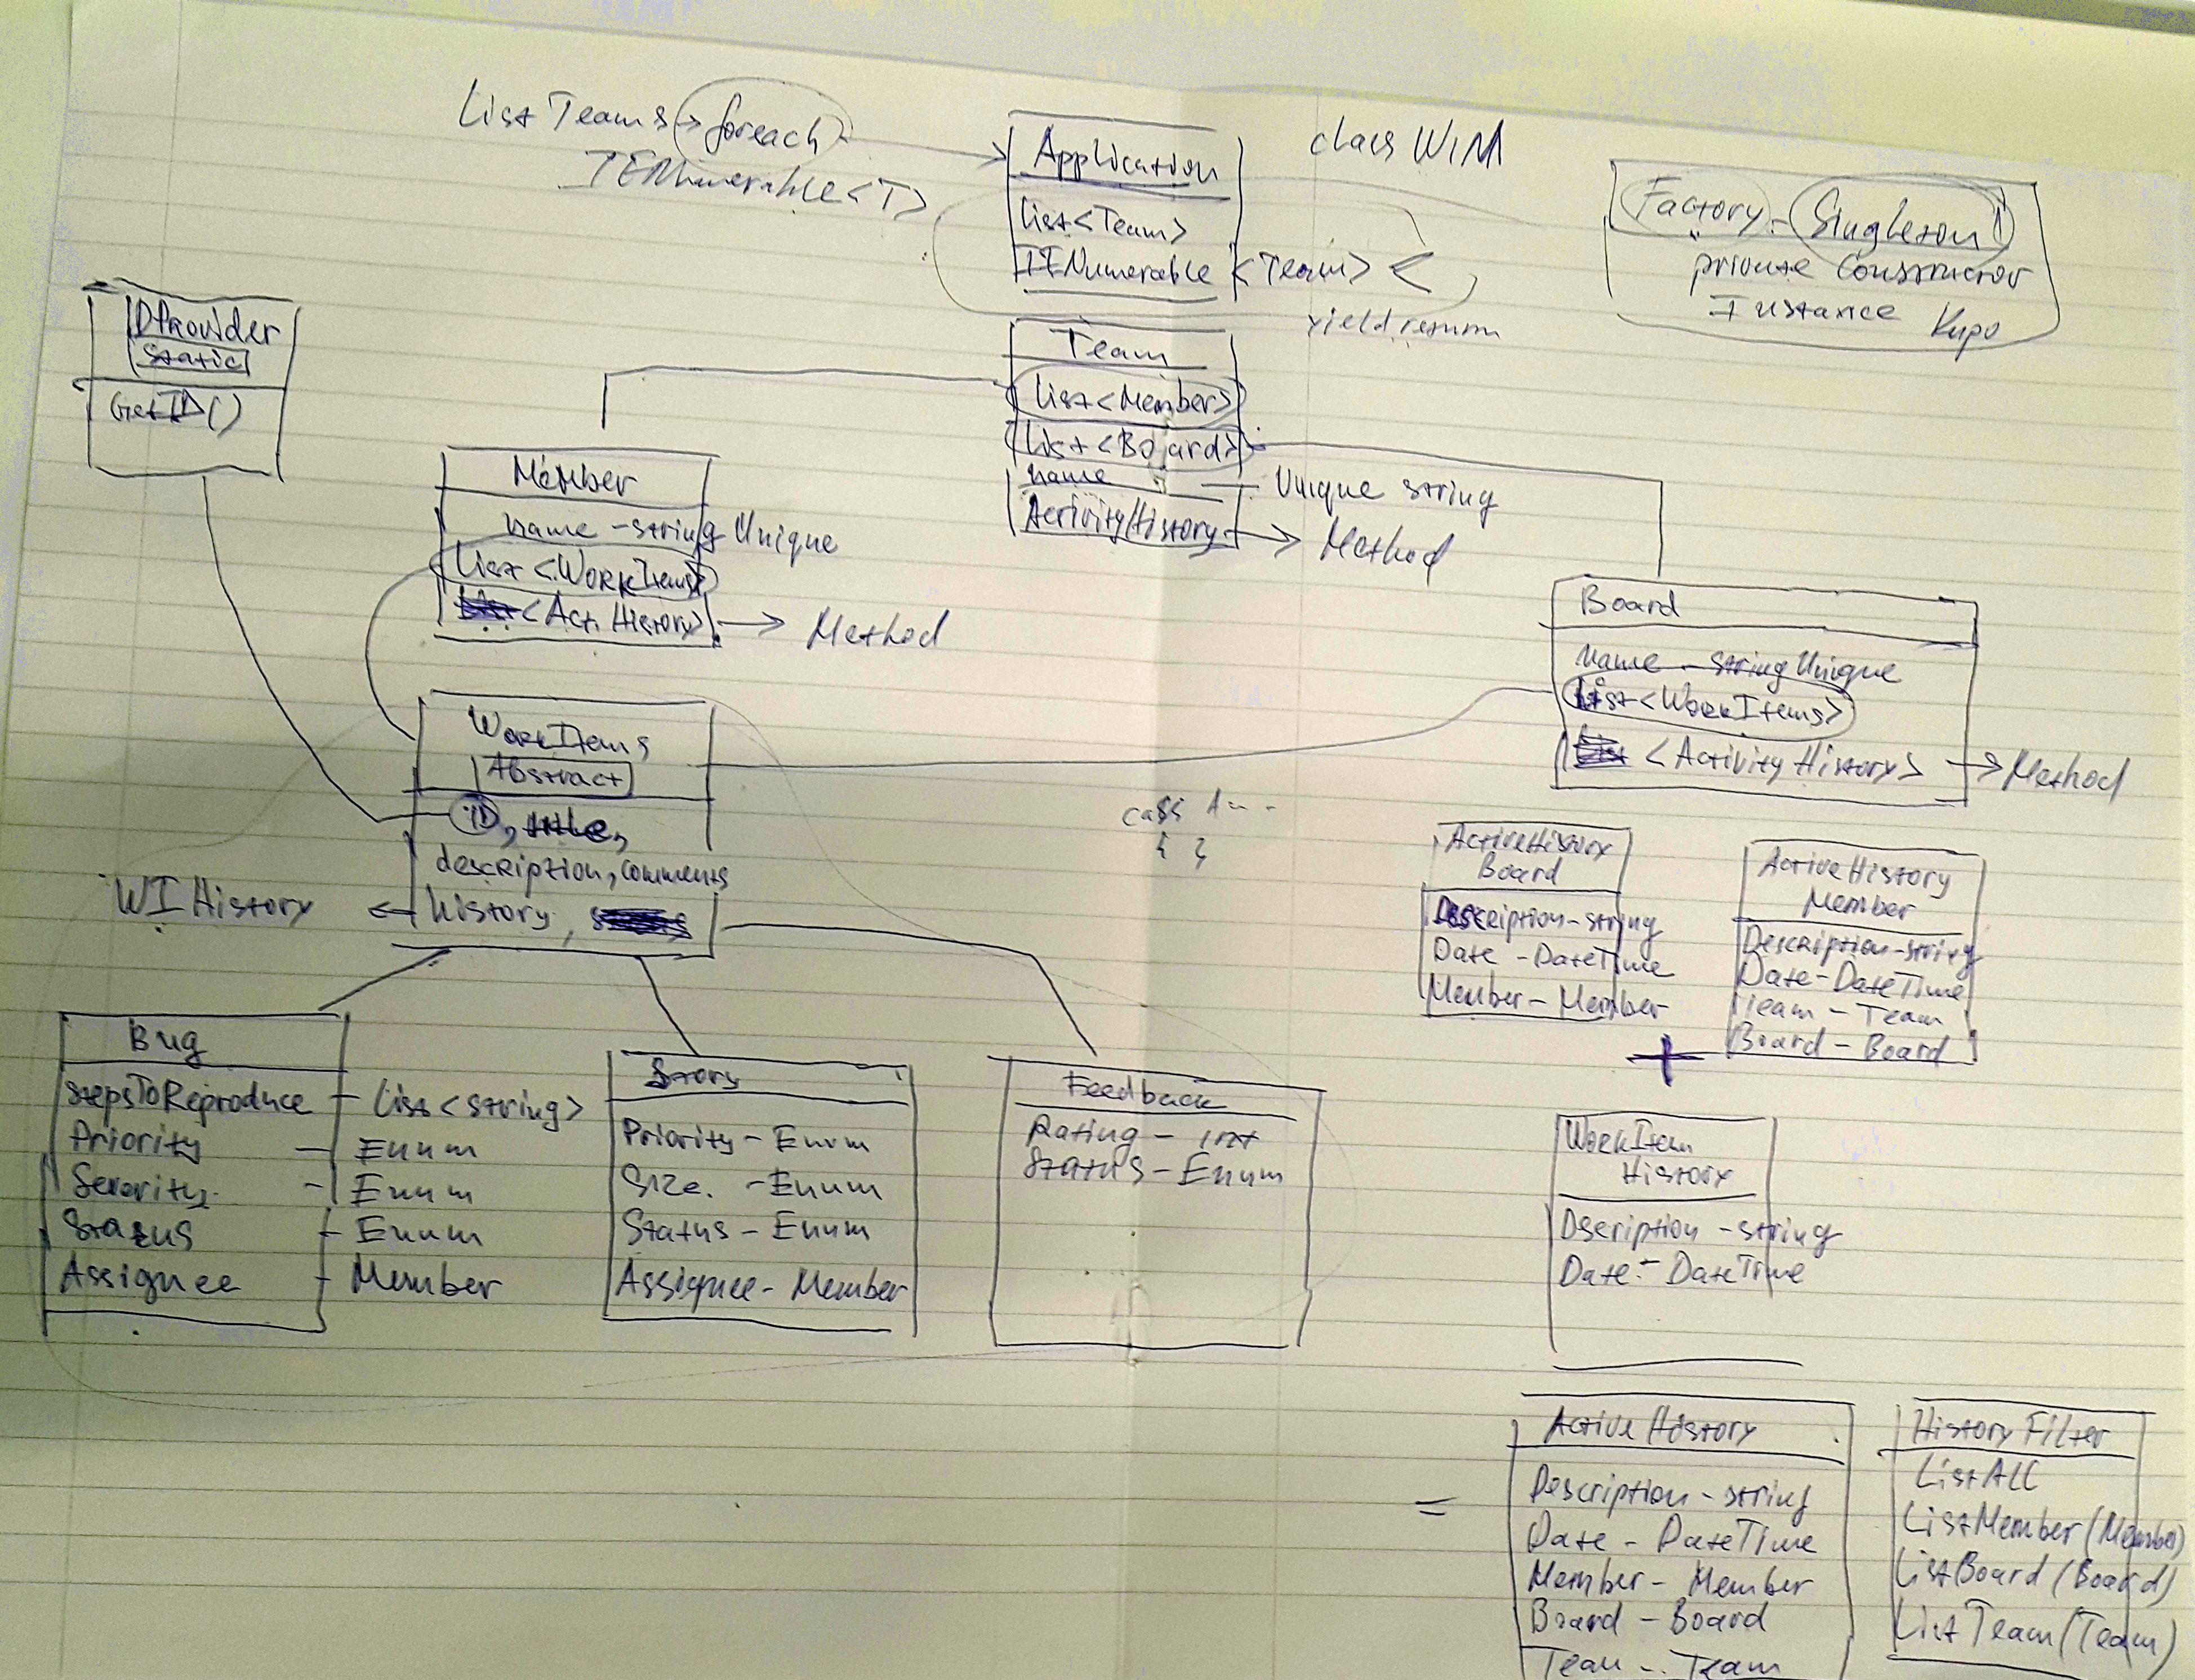 List Teams → foreach
IENumerable<T>
Application
List<Team>
IENumerable <Team> <
yield return
class WIM
Factory - Singleton
private Constructor
Instance
IDProvider
static
GetID()
Team
List<Member>
List<Board>
name — Unique string
ActivityHistory → Method
Member
name - string Unique
List <WorkItems>
<Act. History> → Method
Board
name - string Unique
List<WorkItems>
<Activity History> → Method
WorkItems
Abstract
ID, title,
description, comments
WI History ← history,
{ }
ActiveHistory
Board
Description - string
Date - DateTime
Member - Member
ActiveHistory
Member
Description - string
Date - DateTime
Team - Team
Board - Board
+
Bug
StepsToReproduce - List<string>
Priority - Enum
Severity - Enum
Status - Enum
Assignee - Member
Story
Priority - Enum
Size. - Enum
Status - Enum
Assignee - Member
Feedback
Rating - int
Status - Enum
WorkItem
History
Dscription - string
Date - DateTime
=
Active History
Description - string
Date - DateTime
Member - Member
Board - Board
Team - Team
History Filter
List All
ListMember (Member)
ListBoard (Board)
ListTeam (Team)